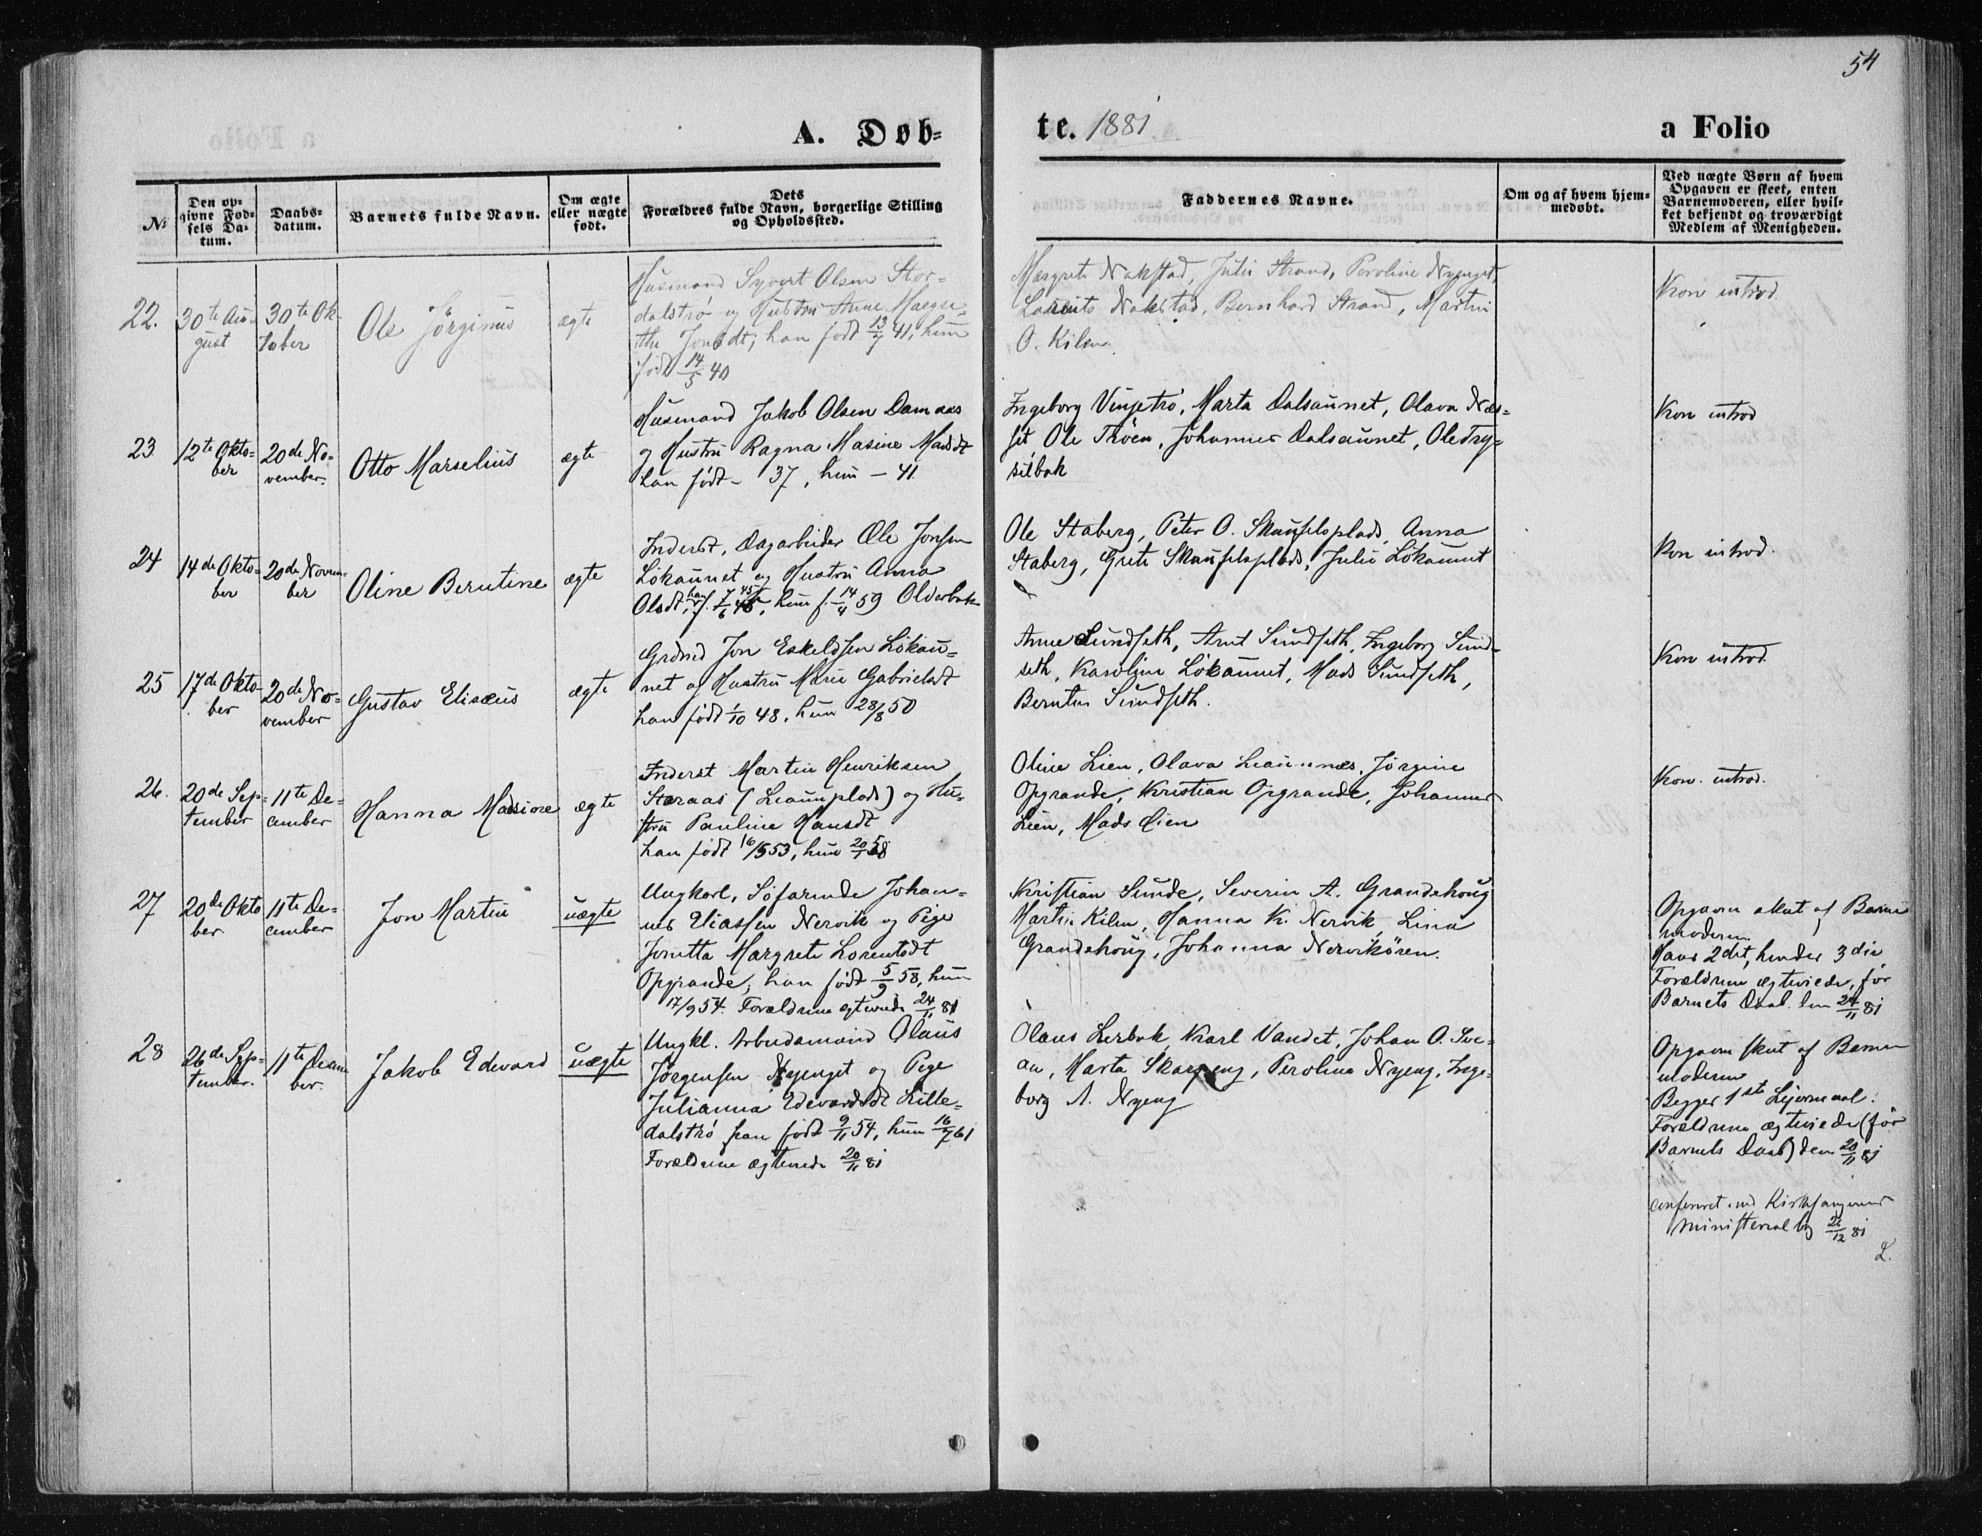 54
A. Døb-
te. 1881
a Folio
№
Den op-
givne Fød-
sels Da-
tum.
Daabs-
datum.
Barnets fulde Navn.
Om ægte
eller uægte
født.
Dets
Forældres fulde Navn, borgerlige Stilling
og Opholdssted.
Faddernes Navne.
Om og af hvem hjem-
medøbt.
Ved uægte Børn af hvem
Opgaven er skeet, enten
Barnemoderen, eller hvil-
ket bekjendt og troværdigt
Medlem af Menigheden.
22.
30te Au-
gust
30te Ok-
tober
Ole Jørginus
ægte
Husmand Syvert Olsen Stor-
dalstrø og Hustru Anne Margre-
the Jonsdt; han født 13/7 41, hun
født 14/5 40
Margrete Nakstad, Julie Strand, Peroline Nyenget
Laurits Nakstad, Bernhard Strand, Martin
O. Kilen.
Kon introd.
23
12te Okto-
ber
20de No-
vember.
Otto Marselius
ægte
Husmand Jakob Olsen Damaas
og Hustru Ragna Masine Madsdt
han født - 37, hun - 41
Ingeborg Vinjetrø, Marta Dalsaunet, Olava Næs-
set Ole Trøen, Johannes Dalsaunet, Ole Try-
silbak
Kon introd
24
14de Okto-
ber
20de Novem-
ber
Oline Berntine
ægte
Inderst, Dagarbeider Ole Jonsen
Lökaunet og Hustru Anna
Olsdt, han f. 7/6 45, hun f. 14/4 59 Olderbak
Ole Staberg, Peter O. Skaufelsplads, Anna
Staberg, Grete Skaufelsplads, Julie Lökaunet
Kon introd.
25
17de Okto-
ber
20de No-
vember
Gustav Elisæus
ægte
Grdmd Jon Eskeldsen Lökau-
net og Hustru Marie Gabrielsdt
han født 1/10 48, hun 28/8 50
Anne Sundseth, Arnt Sundseth, Ingeborg Sund-
seth, Karoline Lökaunet, Mads Sundseth,
Berntus Sundseth.
Kon introd.
26.
20de Sep-
tember
11te De-
cember
Hanna Masine
ægte
Inderst Martin Henriksen
Staraas (Leaunplads) og Hu-
stru Pauline Hansdt
han født 16/5 53, hun 20/1 58
Oline Lien, Olava Leaunnæs, Jørgine
Opgrande, Kristian Opgrande, Johannes
Lien, Mads Lien
Kon. introd.
27
20de Okto
ber
11te De-
cember
Jon Martin
uægte
Ungkarl, Söfarende Johan-
nes Eliassen Nervik og Pige
Jonetta Margrete Lorentsdt
Opgrande; han født 5/9 58, hun
17/9 54. Forældrene ægteviede 24/11 81
Kristian Sunde, Severin A. Grandehoug
Martin Kilen, Hanna K. Nervik, Lina
Grandehoug, Johanna Nervikören.
Opgaven skeet af Barne
moderen
Hans 2det, hendes 3die
Forældrene ægteviede, før
Barnets Daab den 24/11 81
28
26de Sep-
tember.
11te Decem
ber.
Jakob Edevard
uægte
Ungkl. Arbeidsmand Olaus
Jørgensen Nyenget og Pige
Julianna Edevardsdt Lille-
dalstrø han født 9/11 54, hun 16/7 61
Forældrene ægteviede 20/11 81
Olaus Lerbak, Karl Vandet, Johan O. Sve-
an, Marta Skarpeng, Perolina Nyeng, Inge-
borg A. Nyeng
Opgaven skeet af Barne
moderen
Begges 1ste Lejermaal.
Forældrene ægteviede (før
Barnets Daab) den 20/11 81
confereret med Kirkesangerens
Ministerialbog 26/12 81
L.